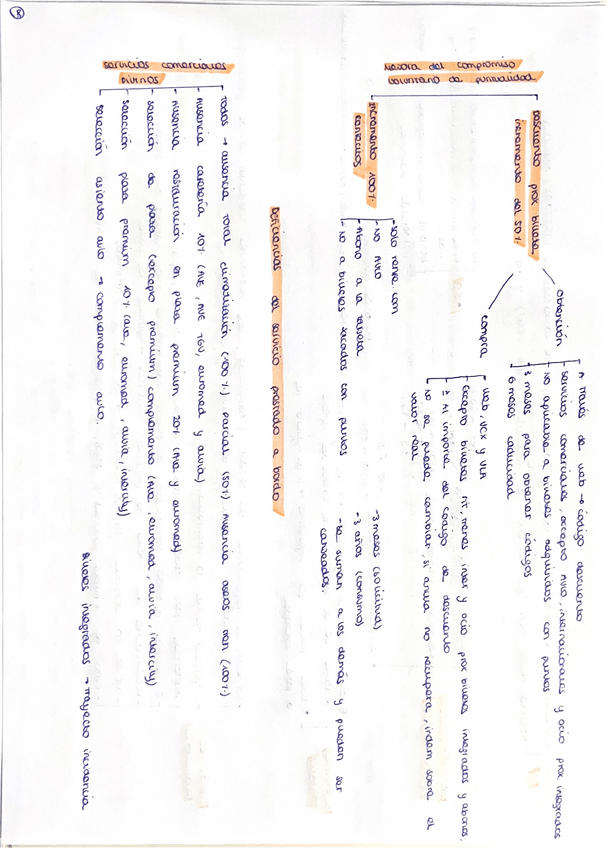 8
Mejora del compromiso
voluntario de puntualidad
Descuento prox billete
incremento del 50%
Obtención
A través de web → código descuento
Servicios comerciales, excepto AVLO, internacionales y ocio prox integrados
No aplicable a billetes adquiridos con puntos
3 meses para obtener códigos
6 meses caducidad
compra
Web, VCX y VLA
Excepto billetes int, trenes, inter y ocio prox billetes integrados y abonos.
≥ Al importe del código de descuento
No se puede cambiar, si anula no recupera, indem sobre el
valor real
Incremento 100%
Renfecitos
- Solo renfe con
- NO AVLO
- Abono a la tarjeta
- No a billetes sacados con puntos
- 3 meses (solicitud)
- 3 años (consumo)
- Se suman a los demás y pueden ser
canjeados.
Deficiencias del servicio prestado a bordo
Servicios comerciales
diurnos
Todos → ausencia total climatización (100%) parcial (50%) Ausencia aseos tren (100%)
- Ausencia cafetería 10% (AVE, AVE TGV, euromed y alvia)
- Ausencia restauración en plaza premium 20% (AVE y euromed)
- Selección de plaza (excepto premium) complemento (AVE, euromed, alvia, intercity)
- Selección plaza premium 10% (AVE, euromed, alvia, intercity)
- Selección asiento avlo → complemento avlo.
Billetes integrados → trayecto incidencia